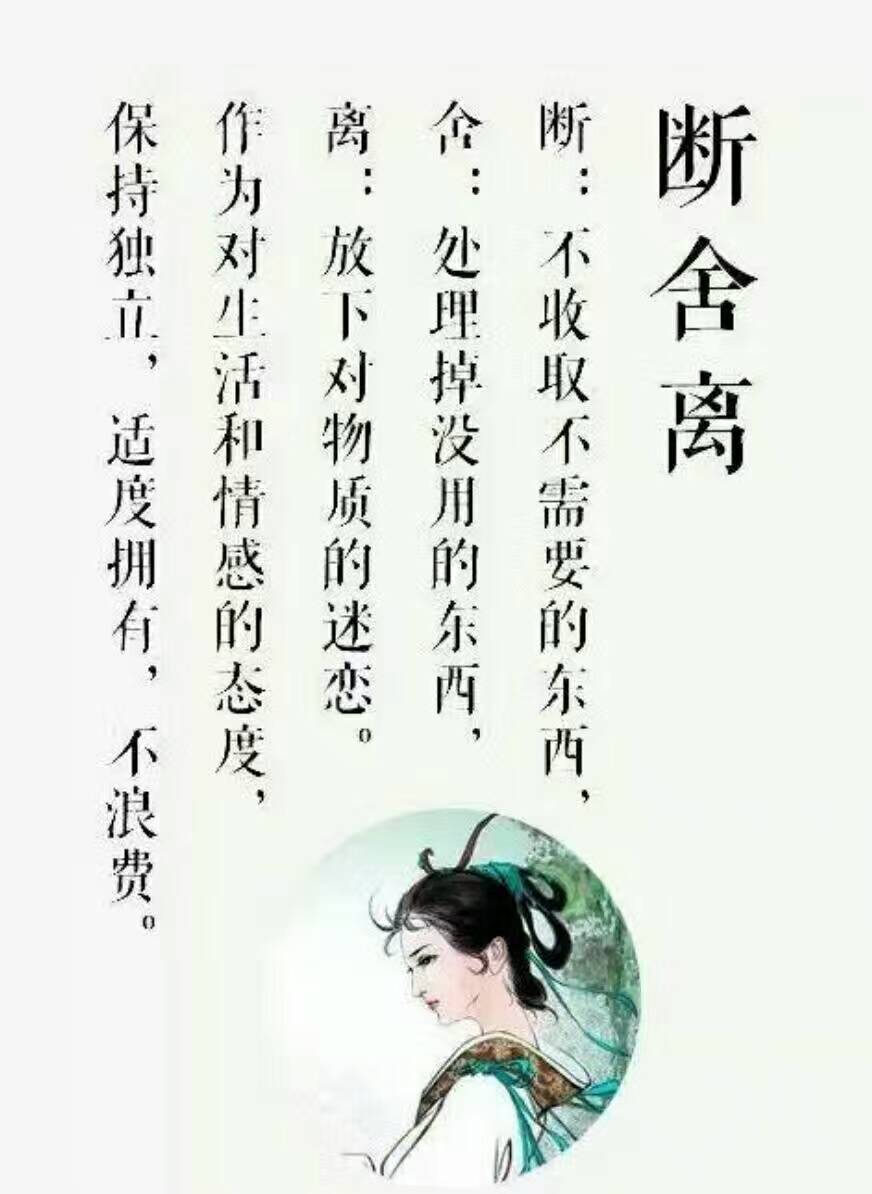 断舍离
断：不收取不需要的东西，
舍：处理掉没用的东西，
离：放下对物质的迷恋。
作为对生活和情感的态度，
保持独立，适度拥有，不浪费。